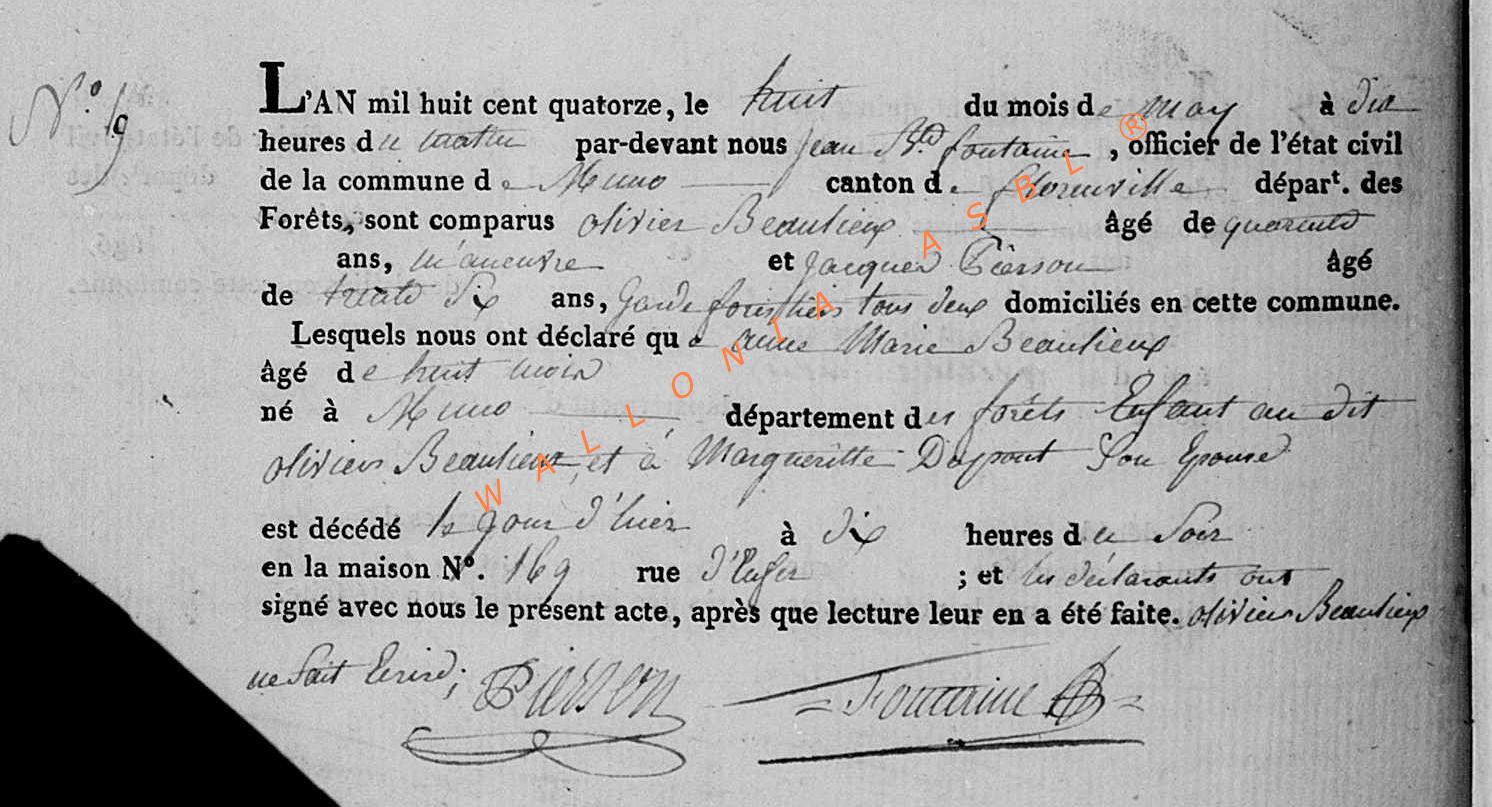 N.o 19
L'AN mil huit cent quatorze, le huit du mois de may à dix
heures du matin par-devant nous jean Bte. fontaine, officier de l'état civil
de la commune de Muno canton de florenville départ. des
Forêts, sont comparus olivier Beaulieux âgé de quarante
ans, manœuvre et Jacques Pierson âgé
de trente six ans, Garde forestiers tous deux domiciliés en cette commune.
Lesquels nous ont déclaré que anne Marie Beaulieux
âgé de huit mois
né à Muno département des forêts Enfant au dit
oliviers Beaulieux et à Margueritte Dupont Son Epouse
est décédé le jour d'hier à dix heures du Soir
en la maison No. 169 rue d'Enfer ; et les déclarants ont
signé avec nous le présent acte, après que lecture leur en a été faite. oliviers Beaulieux
ne Sait Ecrire; Pierson Fontaine
WALLONIA ASBL ®